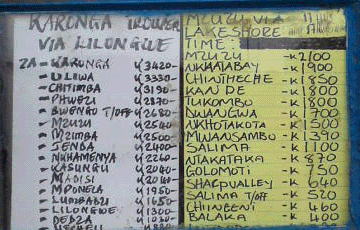 KARONGA
VIA LILONGWE
ZA - KARONGA K3420-
ULIWA K3330-
CHITIMBA K3190-
PHWEZI K2870-
BWENGU T/OFF K2680-
MZUZU K2540-
MZIMBA K2500-
JENDA K2400-
NKHAMENYA K2260-
KASUNGU K2040-
MADISI K2060-
MPONELA K1950-
LUMBADZI K1650-
LILONGWE K1300-
DEDZA
MZUZU VIA
LAKESHORE
TIME:
MZUZU -K2100
NKHATABAY -K1900
CHINTHECHE -K1850
KANDE -K1800
TUKOMBO -K1800
DWANGWA -K1700
NKHOTAKOTA -K1500
MWANSAMBO -K1390
SALIMA -K1100
NTAKATAKA -K870
GOLOMOTI -K750
SHARPVALLEY -K640
SALIMA T/OFF -K520
CHINGENI -K460
BALAKA -K400